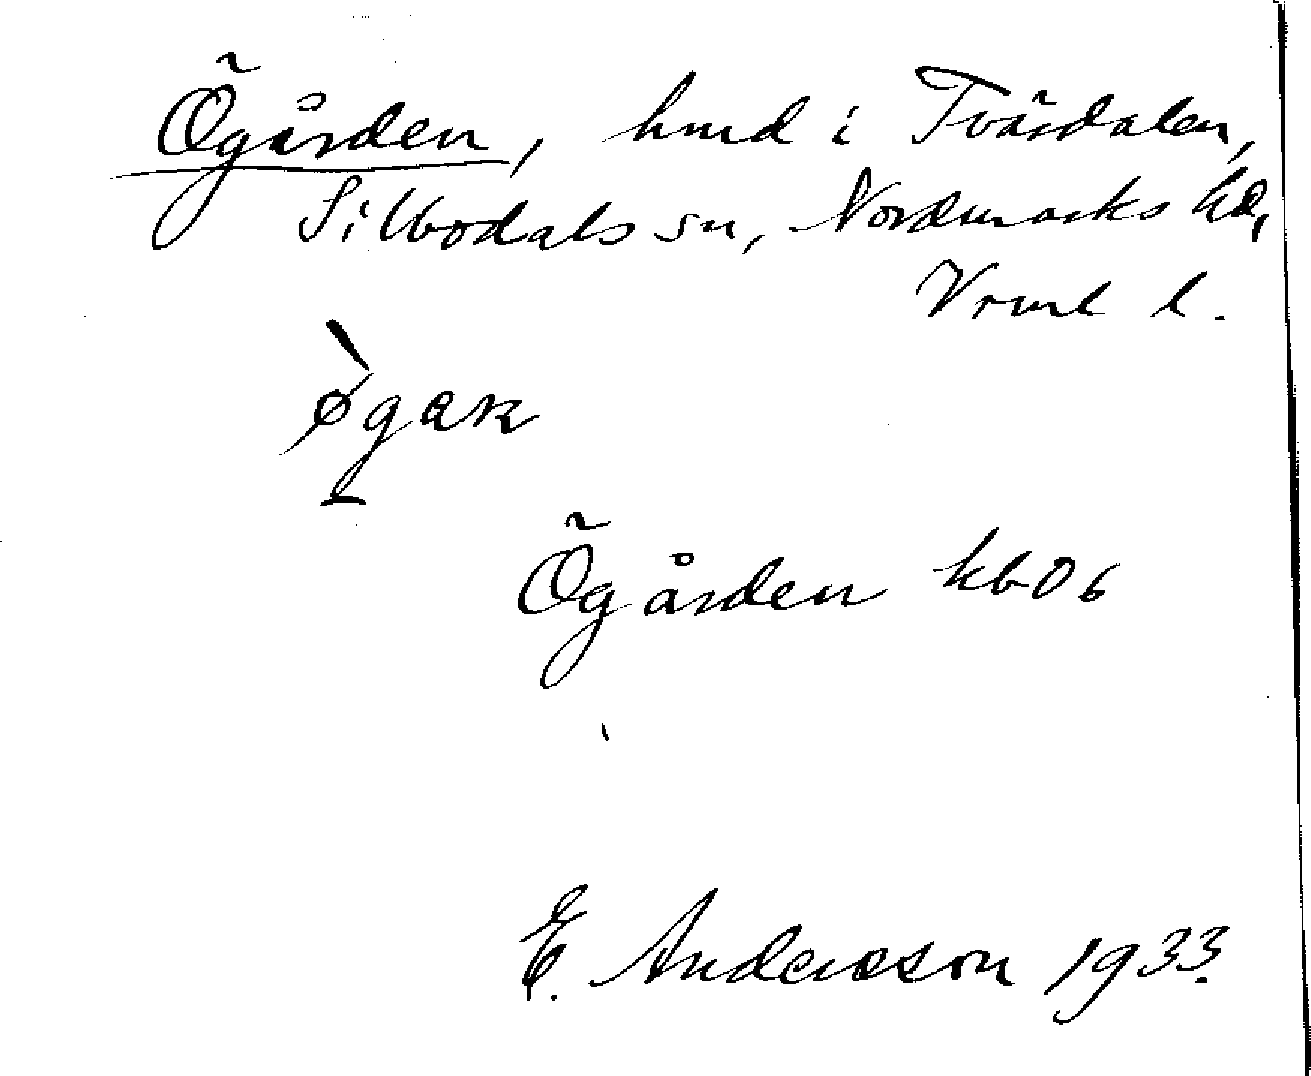 Ögården, hmd i Tvärdalen,
Silbodals sn, Nordmarks hd,
Vrml l.
øgaɴ
Ögården kb 06
E. Andersson 1933.